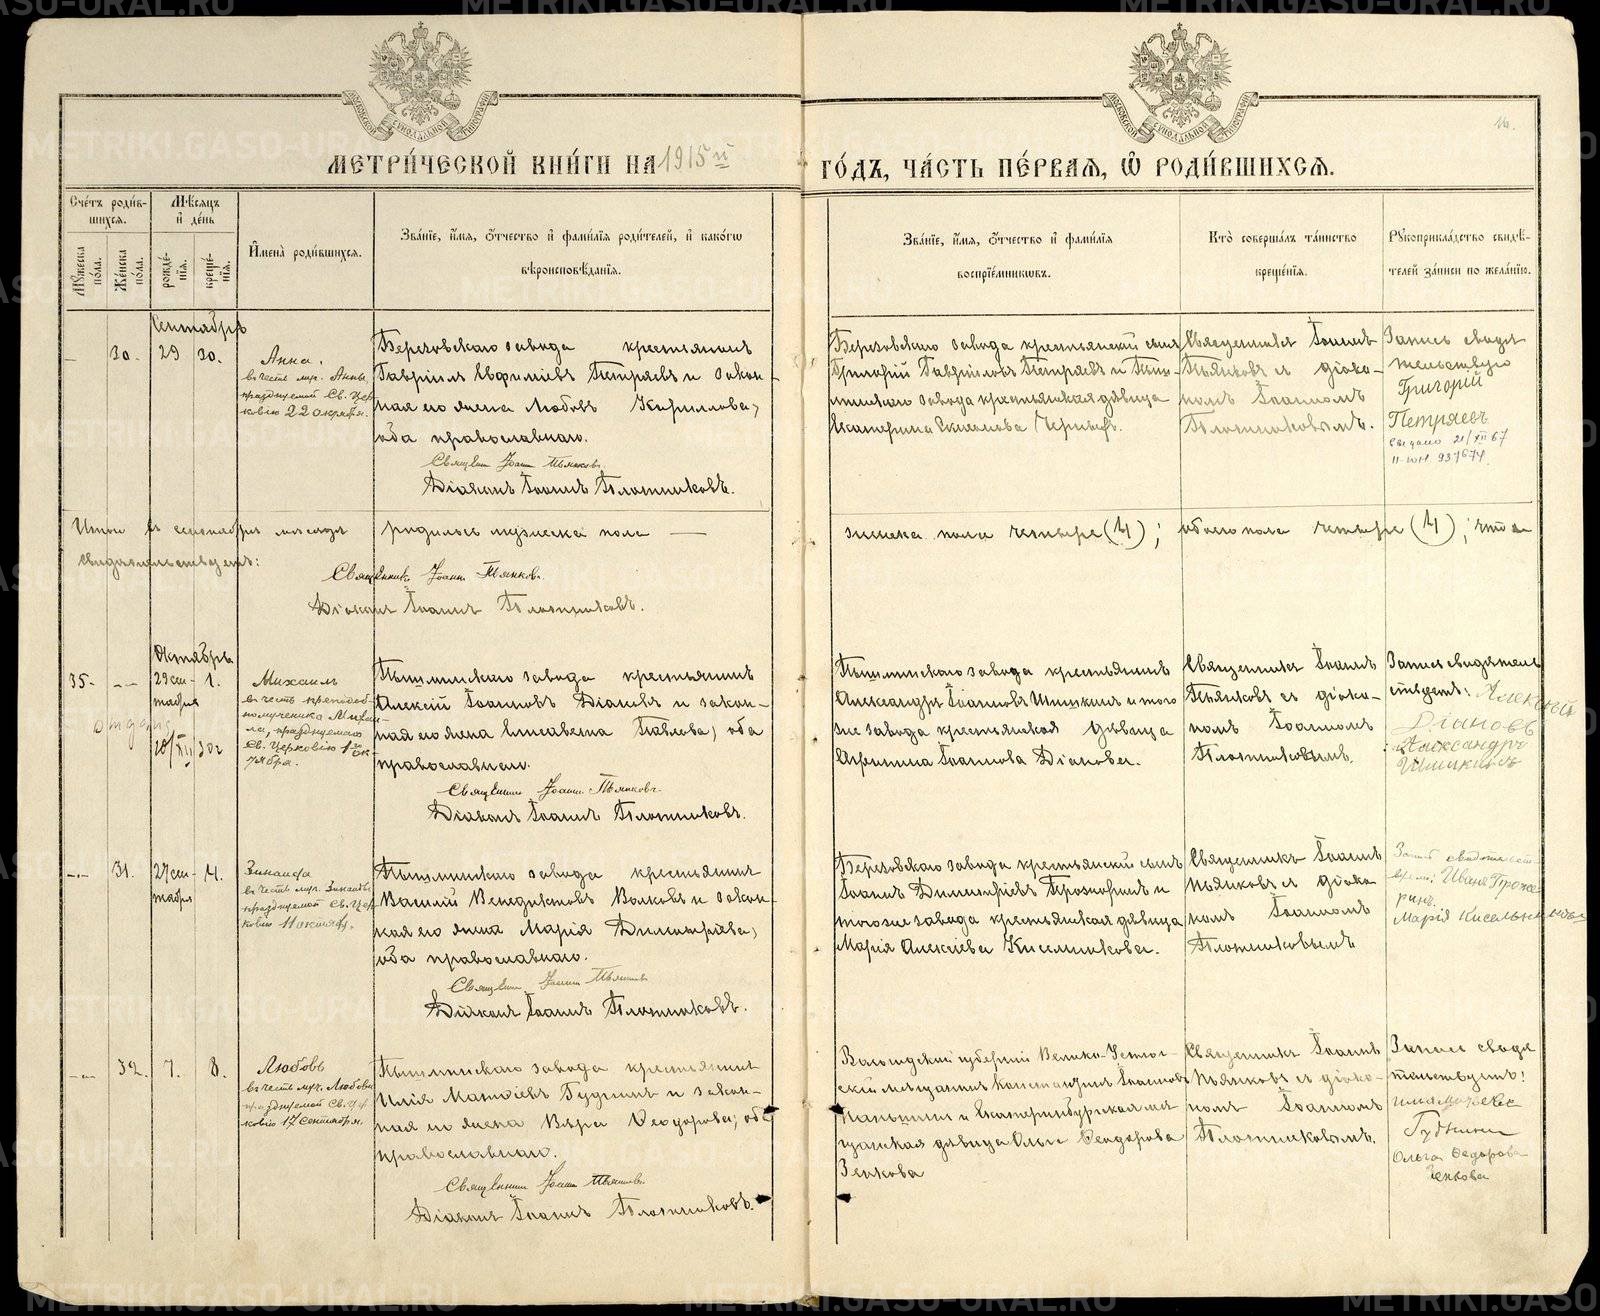 МЕТРИ́ЧЕСКОЙ КНИ́ГИ НА 1915 й ГО́ДЪ, ЧА́СТЬ ПЕ́РВАЯ, Ѽ РОДИ́ВШИХСЯ.
Сче́тъ роди́в-
шихся.
Му́жеска по́ла.
Же́нска по́ла.
Мѣ́сяцъ
и҆ де́нь
рожде́-
нїѧ.
креще́-
нїѧ.
И҆мена̀ роди́вшихся.
Зва́нїе, и҆́мя, ѻ҆́тчество и҆ фами́лїя роди́телей, и҆ како́гѡ
вѣроисповѣ́данїя.
Зва́нїе, и҆́мя, ѻ҆́тчество и҆ фами́лїя
воспрїе́мниковъ.
Кто̀ соверша́лъ та́инство
креще́нїя.
Рꙋкоприкла́дство свидѣ́-
телей за́писи по жела́нїю.
Сентябрь
30. 29 30.
Анна.
въ честь муч. Анны,
празднуемой Св. Цер-
ковію 22 октября.
Березовскаго завода крестьянинъ
Гавріилъ Евфиміевъ Петряевъ и закон-
ная его жена Любовь Кириллова,
оба православнаго.
Священ. Іоаннъ Пьянковъ
Діаконъ Іоаннъ Плотниковъ.
Березовскаго завода крестьянскій сынъ
Григорій Гавріиловъ Петряевъ и Пыш-
минскаго завода крестьянская дѣвица
Екатерина
Священникъ Іоаннъ
Пьянковъ съ діако-
номъ Іоанномъ
Плотниковымъ.
Запись свидѣ
тельствую
Григорій
Петряевъ
21/XII 67
II-ЮН 937674
Итого въ сентябрѣ мѣсяцѣ родилось мужеска пола — женска пола четыре (4); обоего пола четыре (4); что и
свидѣтельствуемъ:
Священникъ Іоаннъ Пьянковъ.
Діаконъ Іоаннъ Плотниковъ.
Октябрь
35. 29 сен- 1.
тября
Михаилъ
въ честь преподоб
номученика Михаи-
ла, празднуемаго
Св. Церковію 1го ок-
тября.
Пышминскаго завода крестьянинъ
Алексій Іоанновъ Діановъ и закон-
ная его жена Елисавета Павлова, оба
православнаго.
Священ. Іоаннъ Пьянковъ
Діаконъ Іоаннъ Плотниковъ.
Пышминскаго завода крестьянинъ
Александръ Іоанновъ Шишкинъ и того
же завода крестьянская дѣвица
Іоаннова Діанова.
Священникъ Іоаннъ
Пьянковъ съ діако-
номъ Іоанномъ
Плотниковымъ.
Запись свидѣтель
ствуетъ: Алексѣй
Діановъ
Александръ
Шишкинъ
31. 27 сен- 4.
тября
Зинаида
въ честь муч. Зинаиды,
празднуемой Св. Цер-
ковію 11 октября.
Пышминскаго завода крестьянинъ
Василій Венедиктовъ Волковъ и закон-
ная его жена Марія Димитріева,
оба православнаго.
Священ. Іоаннъ Пьянковъ
Діаконъ Іоаннъ Плотниковъ.
Березовскаго завода крестьянскій сынъ
Іоаннъ Димитріевъ и
тогоже завода крестьянская дѣвица
Марія Алексіева Кисельникова.
Священникъ Іоаннъ
Пьянковъ съ діако
номъ Іоанномъ
Плотниковымъ
Марія Кисельникова
32. 7. 8.
Любовь
въ честь муч. Любови
празднуемой Св. Цер
ковію 17 сентября.
Пышминскаго завода крестьянинъ
Илія Матѳіевъ Гудинъ и закон-
ная его жена Вѣра Ѳеодорова, оба
православнаго.
Священникъ Іоаннъ Пьянковъ
Діаконъ Іоаннъ Плотниковъ.
Вологодской губерніи Велико-Устюг-
скій мѣщанинъ Константинъ Іоанновъ
и Екатеринбургская мѣ
щанская дѣвица Ольга Ѳеодорова
Зенкова
Священникъ Іоаннъ
Пьянковъ съ діако-
номъ Іоанномъ
Плотниковымъ.
Запись свидѣ
тельствуетъ:
Ольга Федорова
Зенкова
METRIKI.GASO-URAL.RU